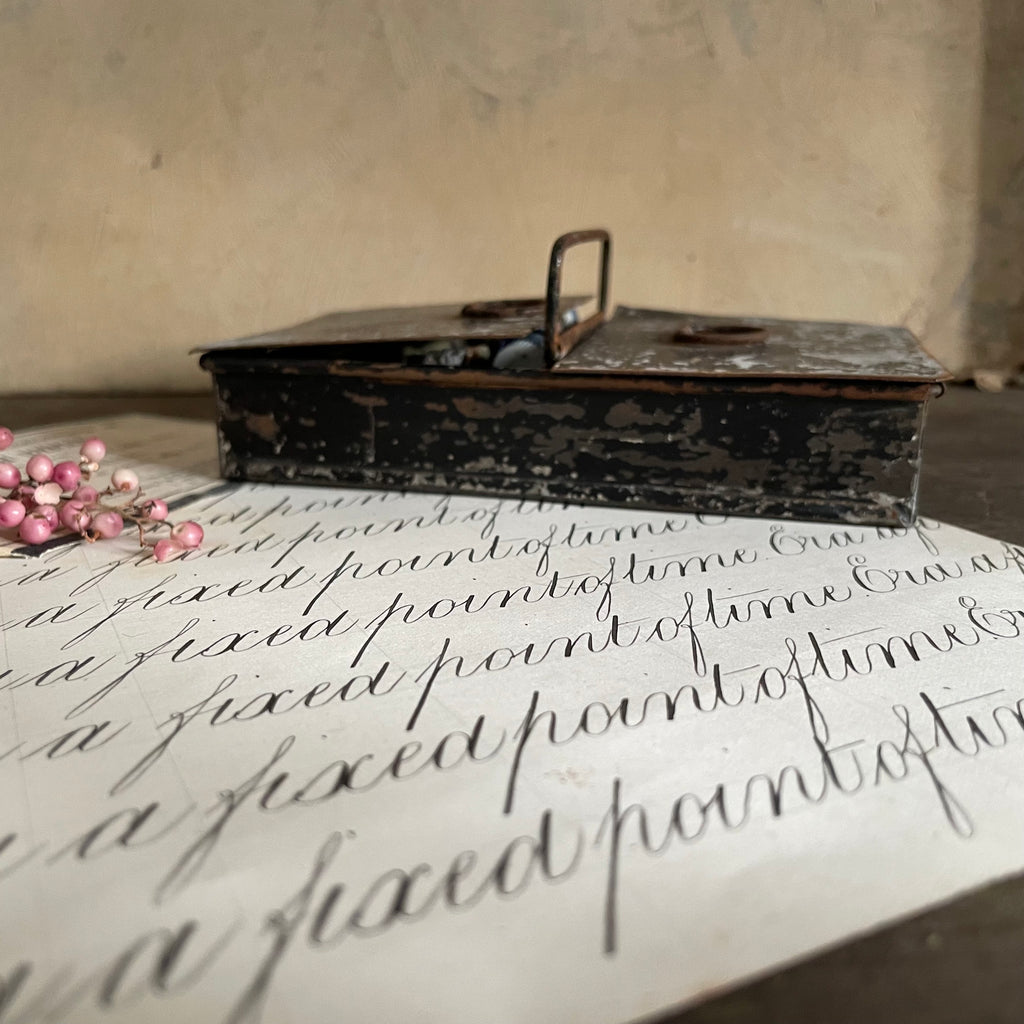 point of
a fixed point of time
a fixed point of time Era a
a fixed point of time Era a
a fixed point of time Era
a fixed point of time
a fixed point of